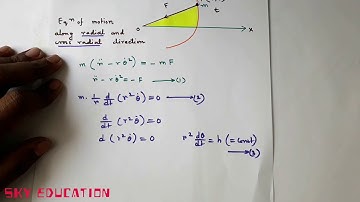 F
m
t
x
Eqⁿ of motion
along radial and
cross radial direction
m (r̈ - rθ̇²) = - m F
r̈ - rθ̇² = - F ⟶ (1)
m. 1/r d/dt (r² θ̇) = 0 ⟶ (2)
d/dt (r² θ̇) = 0
d (r² θ̇) = 0 r² dθ/dt = h (= const)
⟶ (3)
SKY EDUCATION